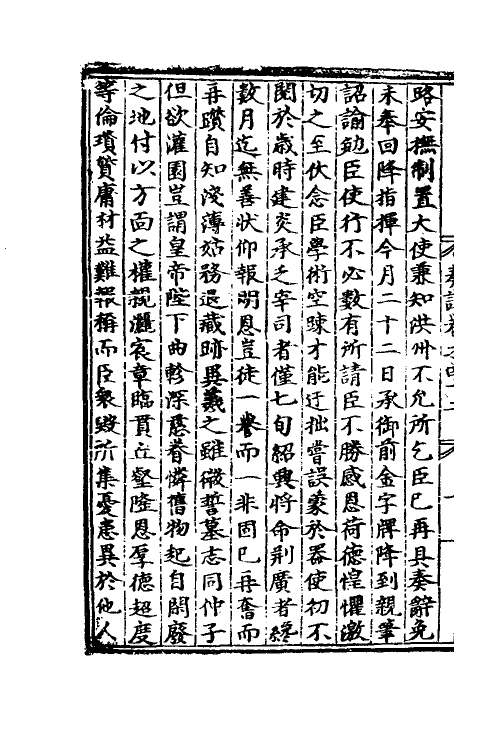 路安撫制置大使兼知洪州不允所乞臣已再具奏辭免
未奉回降指揮今月二十二日承御前金字牌降到親筆
詔諭勉臣使行不必數有所請臣不勝感恩荷德惶懼激
切之至伏念臣學術空疎才能迂拙嘗誤蒙於器使初不
閱於歲時建炎承乏宰司者僅七旬紹興將命荆廣者終
數月迄無善狀仰報明恩豈徒一舉而一非固已再奮而
再躓自知淺薄姑務退藏跡異羲之雖微誓墓志同仲子
但欲灌園豈謂皇帝陛下曲軫深慈眷憐舊物起自閒廢
之地付以方面之權親灑宸章臨賁丘壑隆恩厚德超度
等倫瓆質庸材益難報稱而臣衆毀所集憂患異於他人